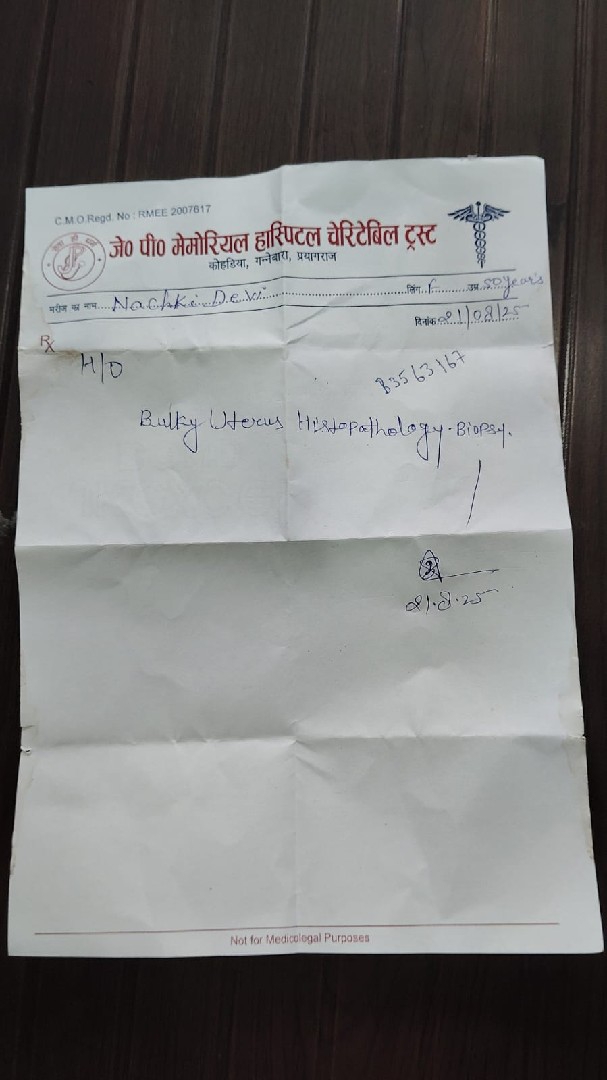 C.M.O.Regd. No : RMEE 2007617
जे० पी० मेमोरियल हास्पिटल चेरिटेबिल ट्रस्ट
कोहडिया, गन्नेबारा, प्रयागराज
मरीज का नाम....Nachki Devi....लिंग.F....उम्र.50 years
दिनांक 21/08/25
Rx
H/O
B3563167
Bulky Uterus Histopathology-Biopsy.
21.8.25
Not for Medicolegal Purposes